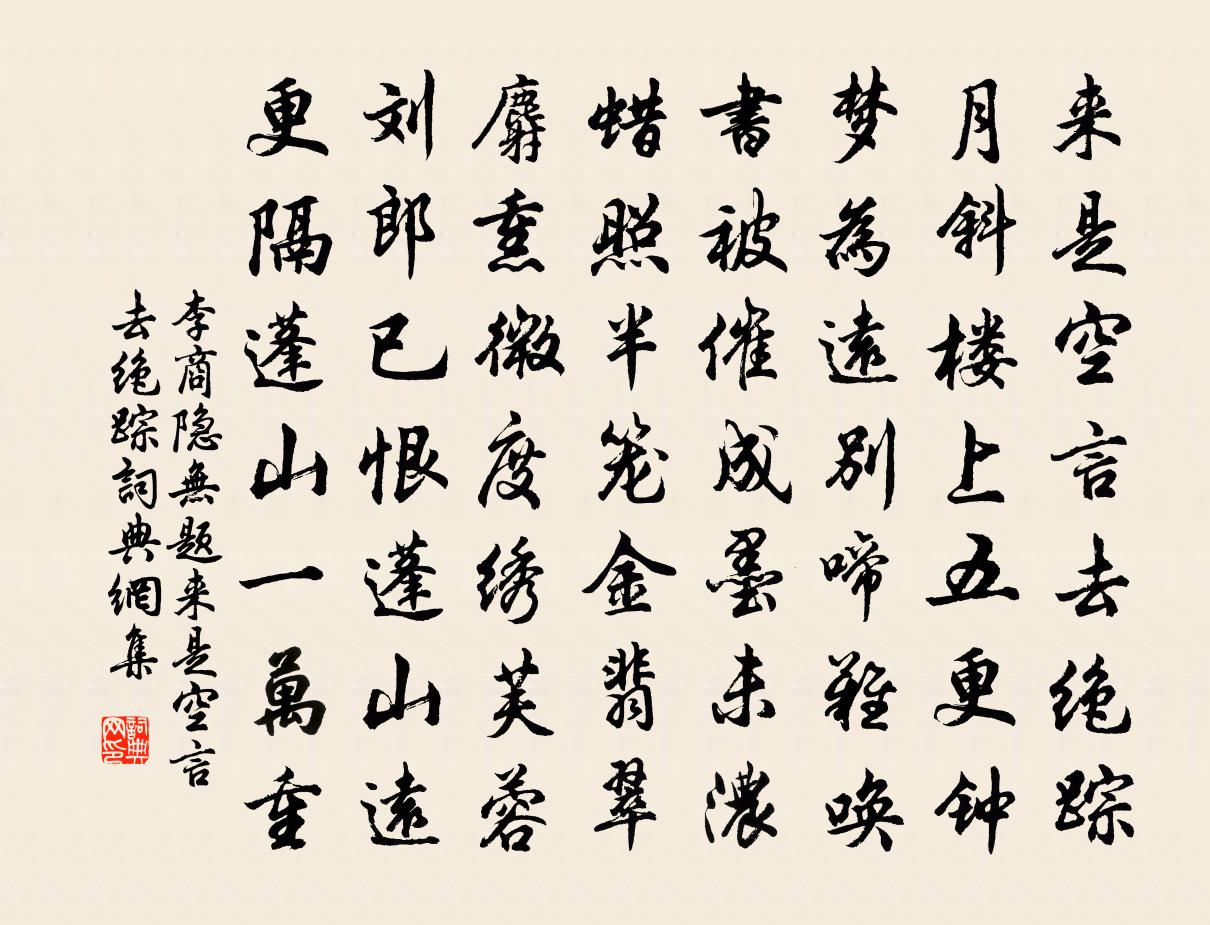 来是空言去绝踪
月斜楼上五更钟
梦為遠别啼難唤
書被催成墨未濃
蜡照半笼金翡翠
麝熏微度绣芙蓉
刘郎已恨蓬山遠
更隔蓬山一萬重
李商隐無题来是空言
去绝踪詞典網集
詞典
网印